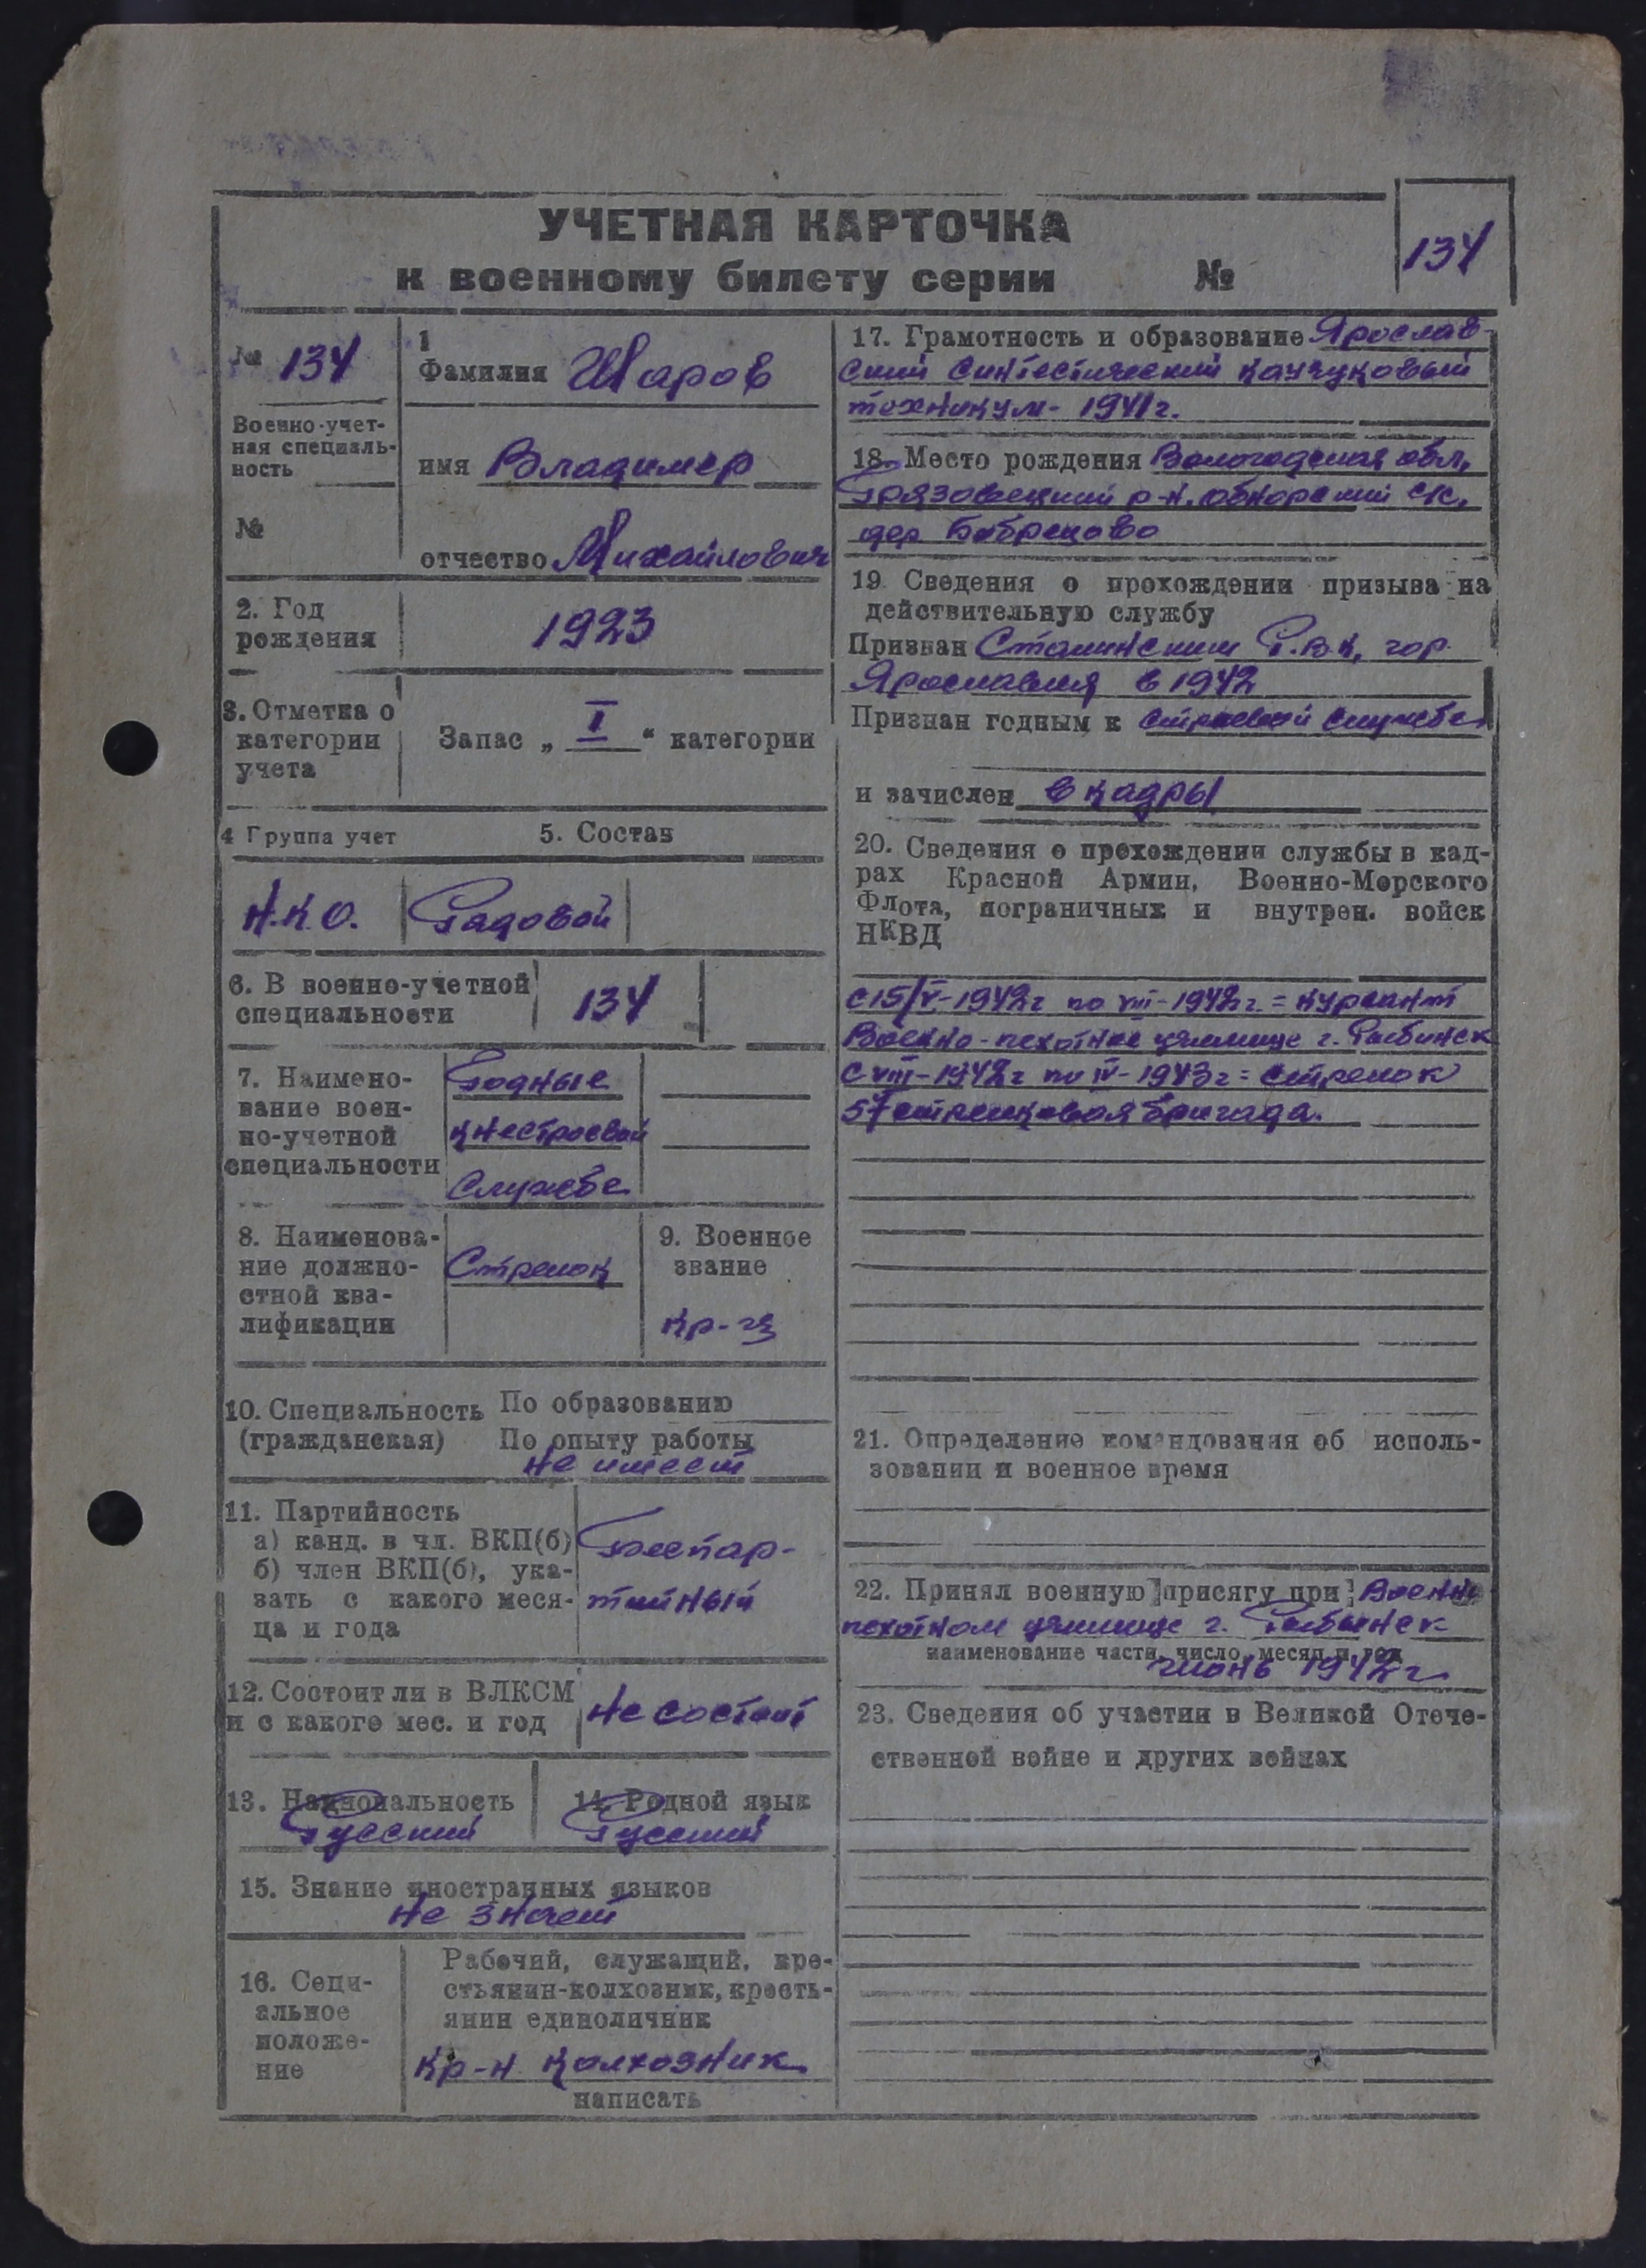 УЧЕТНАЯ КАРТОЧКА
к военному билету серии №
134
№ 134
Военно-учет-
ная специаль-
ность
№
1
Фамилия Шаров
имя Владимер
отчество Михайлович
2. Год
рождения
1923
3. Отметка о
категории
учета
Запас „ I “ категории
4 Группа учет
5. Состав
Н.К.О.
Рядовой
6. В военно-учетной
специальности
134
7. Наимено-
вание воен-
но-учетной
специальности
Годные
к нестроевой
службе
8. Наименова-
ние должно-
стной ква-
лификации
Стрелок
9. Военное
звание
кр-ц
10. Специальность
(гражданская)
По образованию
По опыту работы
не имеет
11. Партийность
а) канд. в чл. ВКП(б)
б) член ВКП(б), ука-
зать с какого меся-
ца и года
Беспар-
тийный
12. Состоит ли в ВЛКСМ
и с какого мес. и год
Не состоит
13. Национальность
Русский
14. Родной язык
Русский
15. Знание иностранных языков
не знает
16. Соци-
альное
положе-
ние
Рабочий, служащий, кре-
стьянин-колхозник, кресть-
янин единоличник
кр-н колхозник
написать
17. Грамотность и образование Ярослав-
ский синтестический каучуковый
техникум - 1941 г.
18. Место рождения Вологодская обл,
Грязовецкий р-н. Обнорский с/с,
дер Бобрецово
19. Сведения о прохождении призыва на
действительную службу
Призван Сталинским Р.В.К, гор.
Ярославля в 1942
Признан годным к строевой службе
и зачислен в кадры
20. Сведения о прохождении службы в кад-
рах Красной Армии, Военно-Морского
Флота, пограничных и внутрен. войск
НКВД
с 15/V-1942 г по VIII-1942 г. = курсант
Военно-пехотное училище г. Рыбинск
с VIII-1942 г по IV-1943 г = стрелок
57 стрелковая бригада.
21. Определение командования об исполь-
зовании и военное время
22. Принял военную присягу при Военно
пехотном училище г. Рыбинск
наименование части, число, месяц и год
июнь 1942 г
23. Сведения об участии в Великой Отече-
ственной войне и других войнах